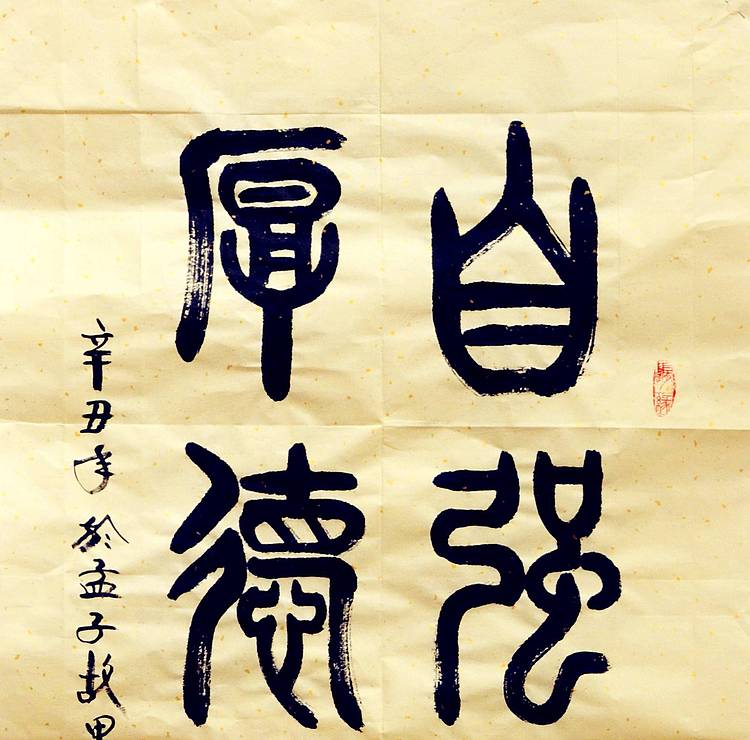 自强
厚德
辛丑年於孟子故里